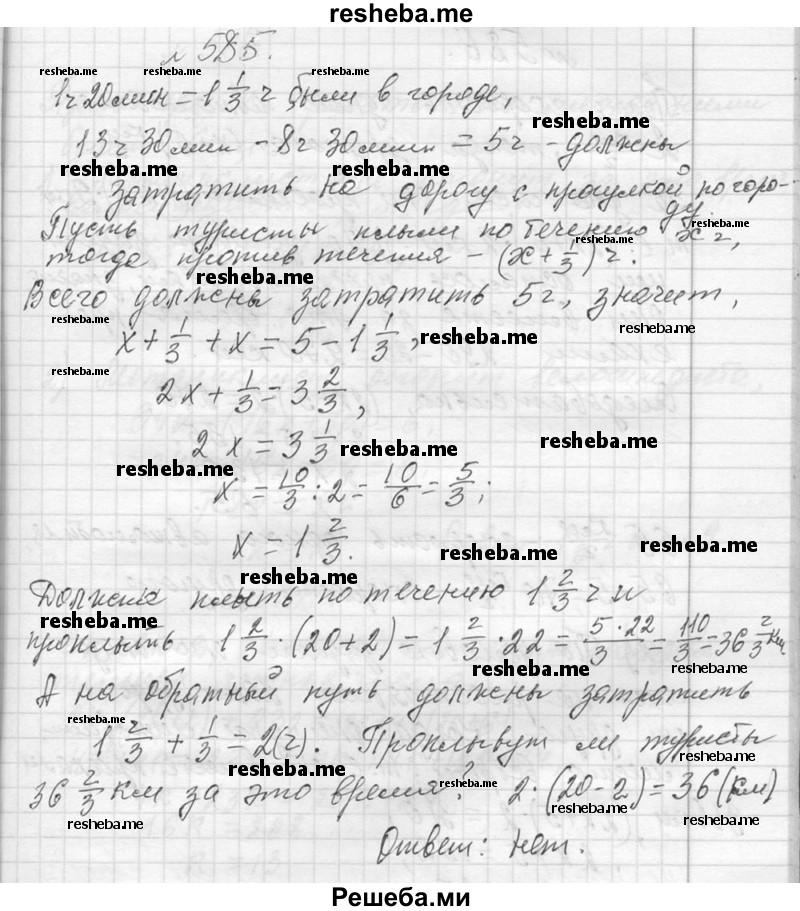 resheba.me
№ 585.
resheba.me resheba.me resheba.me
1ч 20мин = 1 1/3 ч были в городе,
resheba.me
13ч 30мин - 8ч 30мин = 5ч - должны
resheba.me resheba.me
затратить на дорогу с прогулкой по горо-
ду.
Пусть туристы плыли по течению x ч,
resheba.me
тогда против течения - (x + 1/3) ч.
resheba.me
Всего должны затратить 5ч, значит,
resheba.me resheba.me
x + 1/3 + x = 5 - 1 1/3,
resheba.me
resheba.me
2x + 1/3 = 3 2/3,
2x = 3 1/3
resheba.me resheba.me
resheba.me
x = 10/3 : 2 = 10/6 = 5/3;
x = 1 2/3.
resheba.me resheba.me
resheba.me
Должны плыть по течению 1 2/3 ч и
resheba.me
проплыть 1 2/3 · (20+2) = 1 2/3 · 22 = 5·22/3 = 110/3 = 36 2/3 км
resheba.me resheba.me
А на обратный путь должны затратить
resheba.me
1 2/3 + 1/3 = 2(ч). Проплывут ли туристы
resheba.me
resheba.me
36 2/3 км за это время? 2·(20-2) = 36(км)
resheba.me resheba.me
resheba.me
Ответ: нет.
Решеба.ми